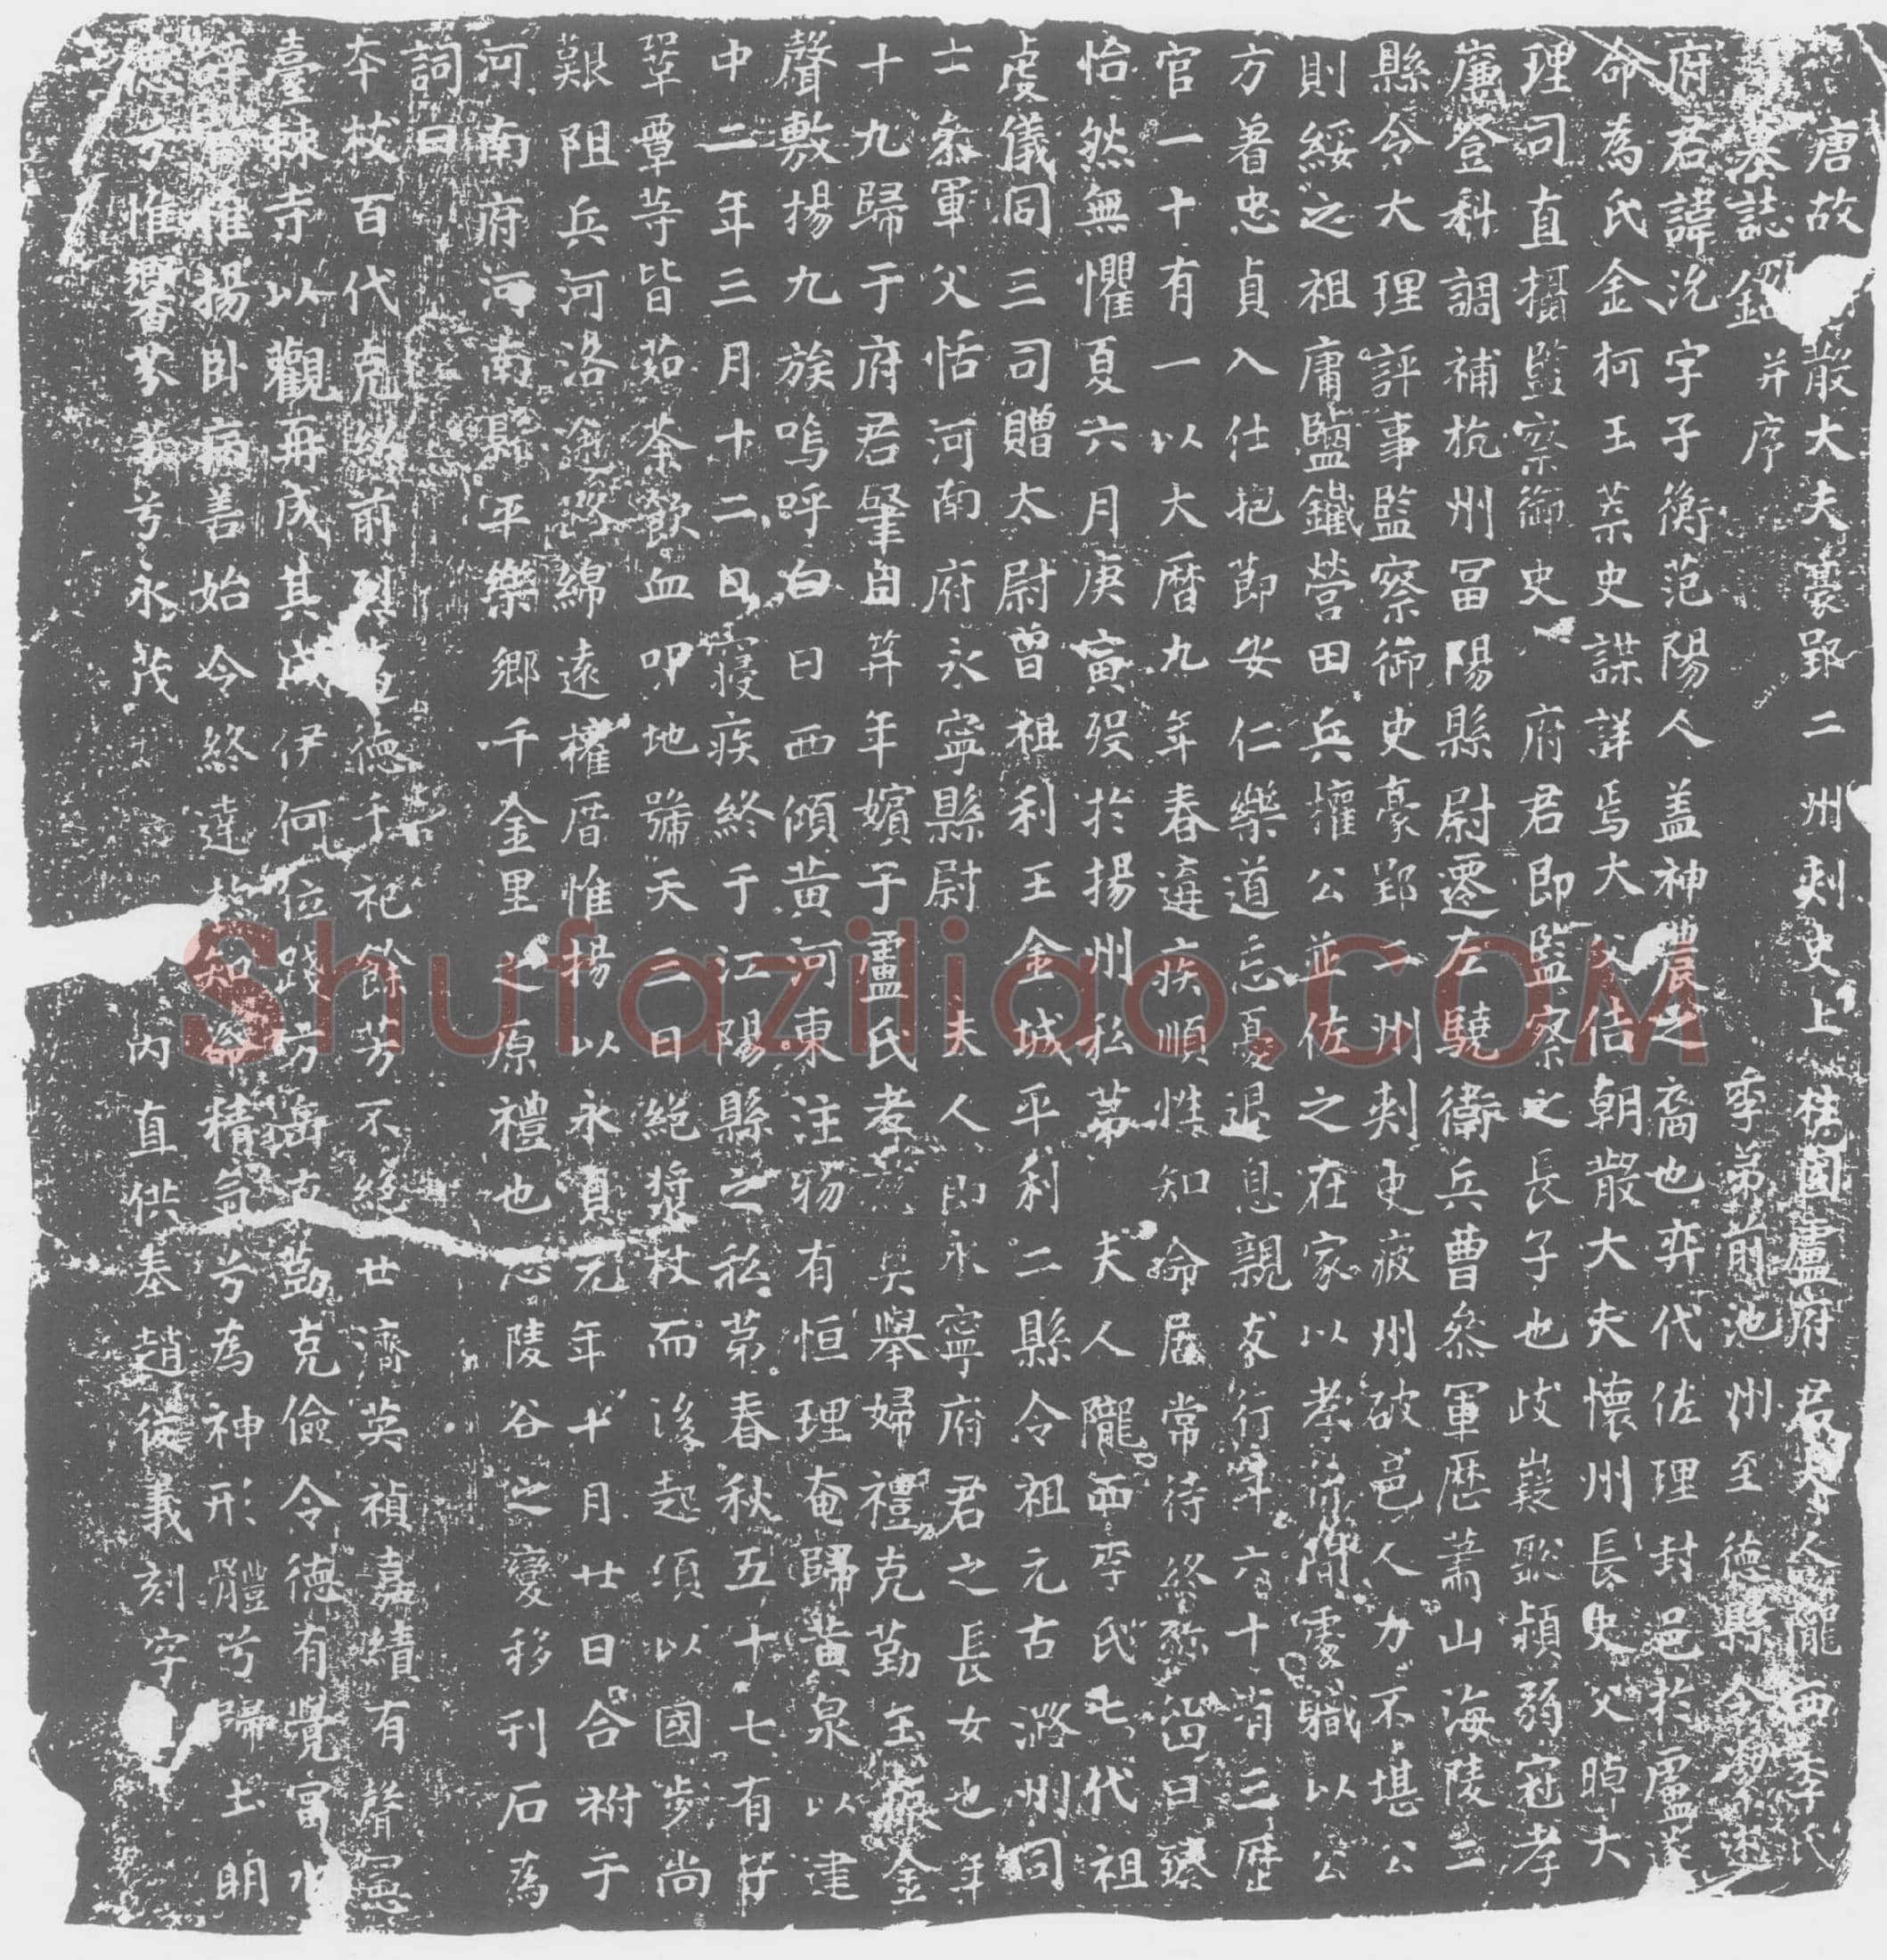 唐故朝散大夫豪郢二州刺史上柱國盧府君夫人隴西李氏
墓誌銘并序 季弟前池州至德縣令 述
府君諱沇字子衡范陽人蓋神農之裔也弈代佐理封邑於盧
命為氏金柯玉葉史諜詳焉大父佶朝散大夫懷州長史父晫大
理司直攝監察御史 府君即監察之長子也歧嶷聰穎弱冠孝
廉登科調補杭州冨陽縣尉遷左驍衛兵曹叅軍歷蕭山海陵二
縣令大理評事監察御史豪郢二州刺史疲州破邑人力不堪公
則綏之租庸鹽鐵營田兵權公並佐之在家以孝 職以公
方著忠貞入仕抱節安仁樂道忘憂退息親友行年六十有三歷
官一十有一以大曆九年春遘疾順性知命居常待終 曰臻
怡然無懼夏六月庚寅歿於揚州私苐 夫人隴西李氏七代祖
虔儀同三司贈太尉曾祖利王金城平利二縣令祖元古潞州司
士叅軍父恬河南府永寧縣尉 夫人即永寧府君之長女也年
十九歸于府君肇自笄年嬪于盧氏孝 舉婦禮克勤 金
聲敷揚九族嗚呼白日西傾黃河東注物有恒理奄歸黃泉以建
中二年三月十二日寢疾終于江陽縣之私苐春秋五十七有子
翠覃等皆茹荼飲血叩地號天三日絕漿杖而後起須以國步尚
艱阻兵河洛塗路綿遠權厝惟揚以永貞元年十月廿日合祔于
河南府河南縣平樂鄉千金里之原禮也 陵谷之變移刊石為
詞曰
夲枝百代克紹前烈 德千祀餘芳不絕廿濟英禎嘉績有聲憲
臺棘寺以觀再成其 伊何位踐方岳克勤克儉令德有覺 水
惟揚臥病善始令終達 知 精氣兮為神形體兮歸土明
德兮惟馨 兮永茂 內直供奉趙從義刻字